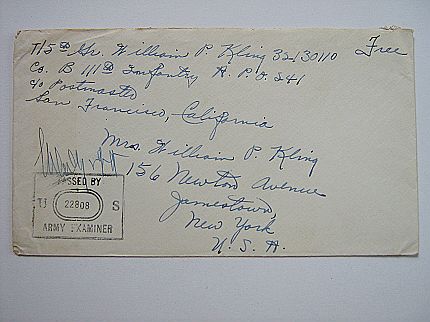 T/5th Gr. William P. Kling 32130110 Free
Co. B 111th Infantry A.P.O. 241
c/o Postmaster
San Francisco, California
Mrs. William P. Kling
156 Newton Avenue
Jamestown,
New York
U. S. A.
PASSED BY
U 22808 S
ARMY EXAMINER